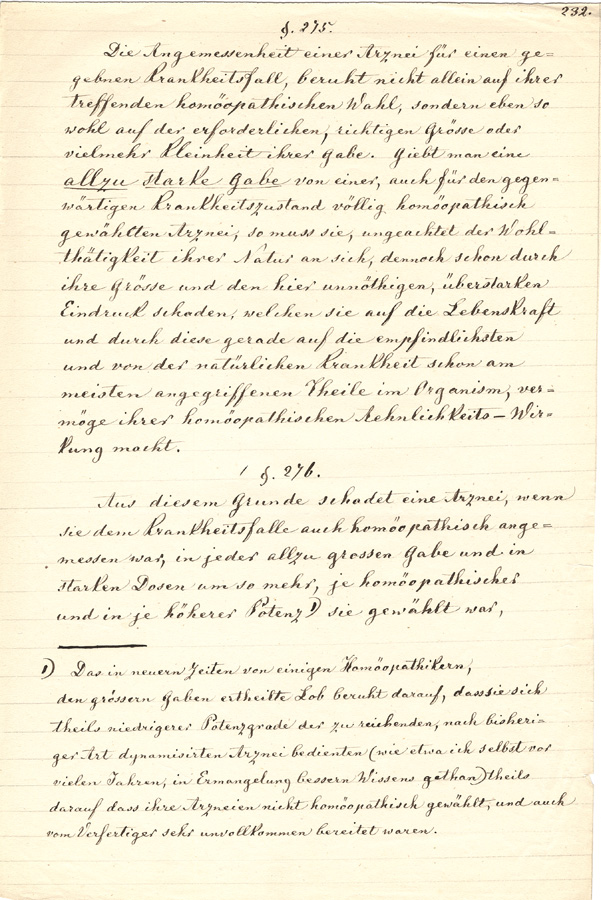 232.
§. 275.
Die Angemessenheit einer Arznei für einen ge=
gebnen Krankheitsfall, beruht nicht allein auf ihrer
treffenden homöopathischen Wahl, sondern eben so
wohl auf der erforderlichen, richtigen Grösse oder
vielmehr Kleinheit ihrer Gabe. Giebt man eine
allzu starke Gabe von einer, auch für den gegen=
wärtigen Krankheitszustand völlig homöopathisch
gewählten Arznei, so muss sie, ungeachtet der Wohl=
thätigkeit ihrer Natur an sich, dennoch schon durch
ihre Grösse und den hier unnöthigen, überstarken
Eindruck schaden, welchen sie auf die Lebenskraft
und durch diese gerade auf die empfindlichsten
und von der natürlichen Krankheit schon am
meisten angegriffenen Theile im Organism, ver=
möge ihrer homöopathischen Aehnlichkeits-Wir=
kung macht.
§. 276.
Aus diesem Grunde schadet eine Arznei, wenn
sie dem Krankheitsfalle auch homöopathisch ange=
messen war, in jeder allzu grossen Gabe und in
starken Dosen um so mehr, je homöopathischer
und in je höherer Potenz 1) sie gewählt war,
1) Das in neuern Zeiten von einigen Homöopathikern,
den grössern Gaben ertheilte Lob beruht darauf, dass sie sich
theils niedrigerer Potenzgrade der zu reichenden, nach bisheri=
ger Art dynamisirten Arznei bedienten (wie etwa ich selbst vor
vielen Jahren, in Ermangelung bessern Wissens gethan) theils
darauf dass ihre Arzneien nicht homöopathisch gewählt, und auch
vom Verfertiger sehr unvollkommen bereitet waren.